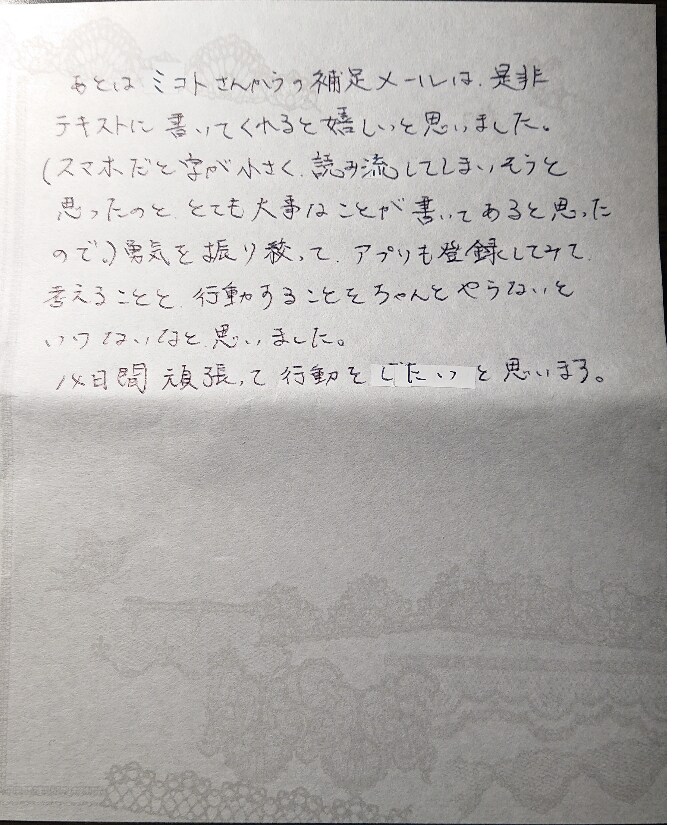 あとは ミコトさんからの補足メールは、是非
テキストに書いてくれると嬉しいと思いました。
(スマホだと字が小さく、読み流してしまいそうと
思ったのと、とても大事なことが書いてあると思った
ので。)勇気を振り絞って、アプリも登録してみて、
考えることと、行動することをちゃんとやらないと
いけないなと思いました。
14日間 頑張って行動をしたいと思います。